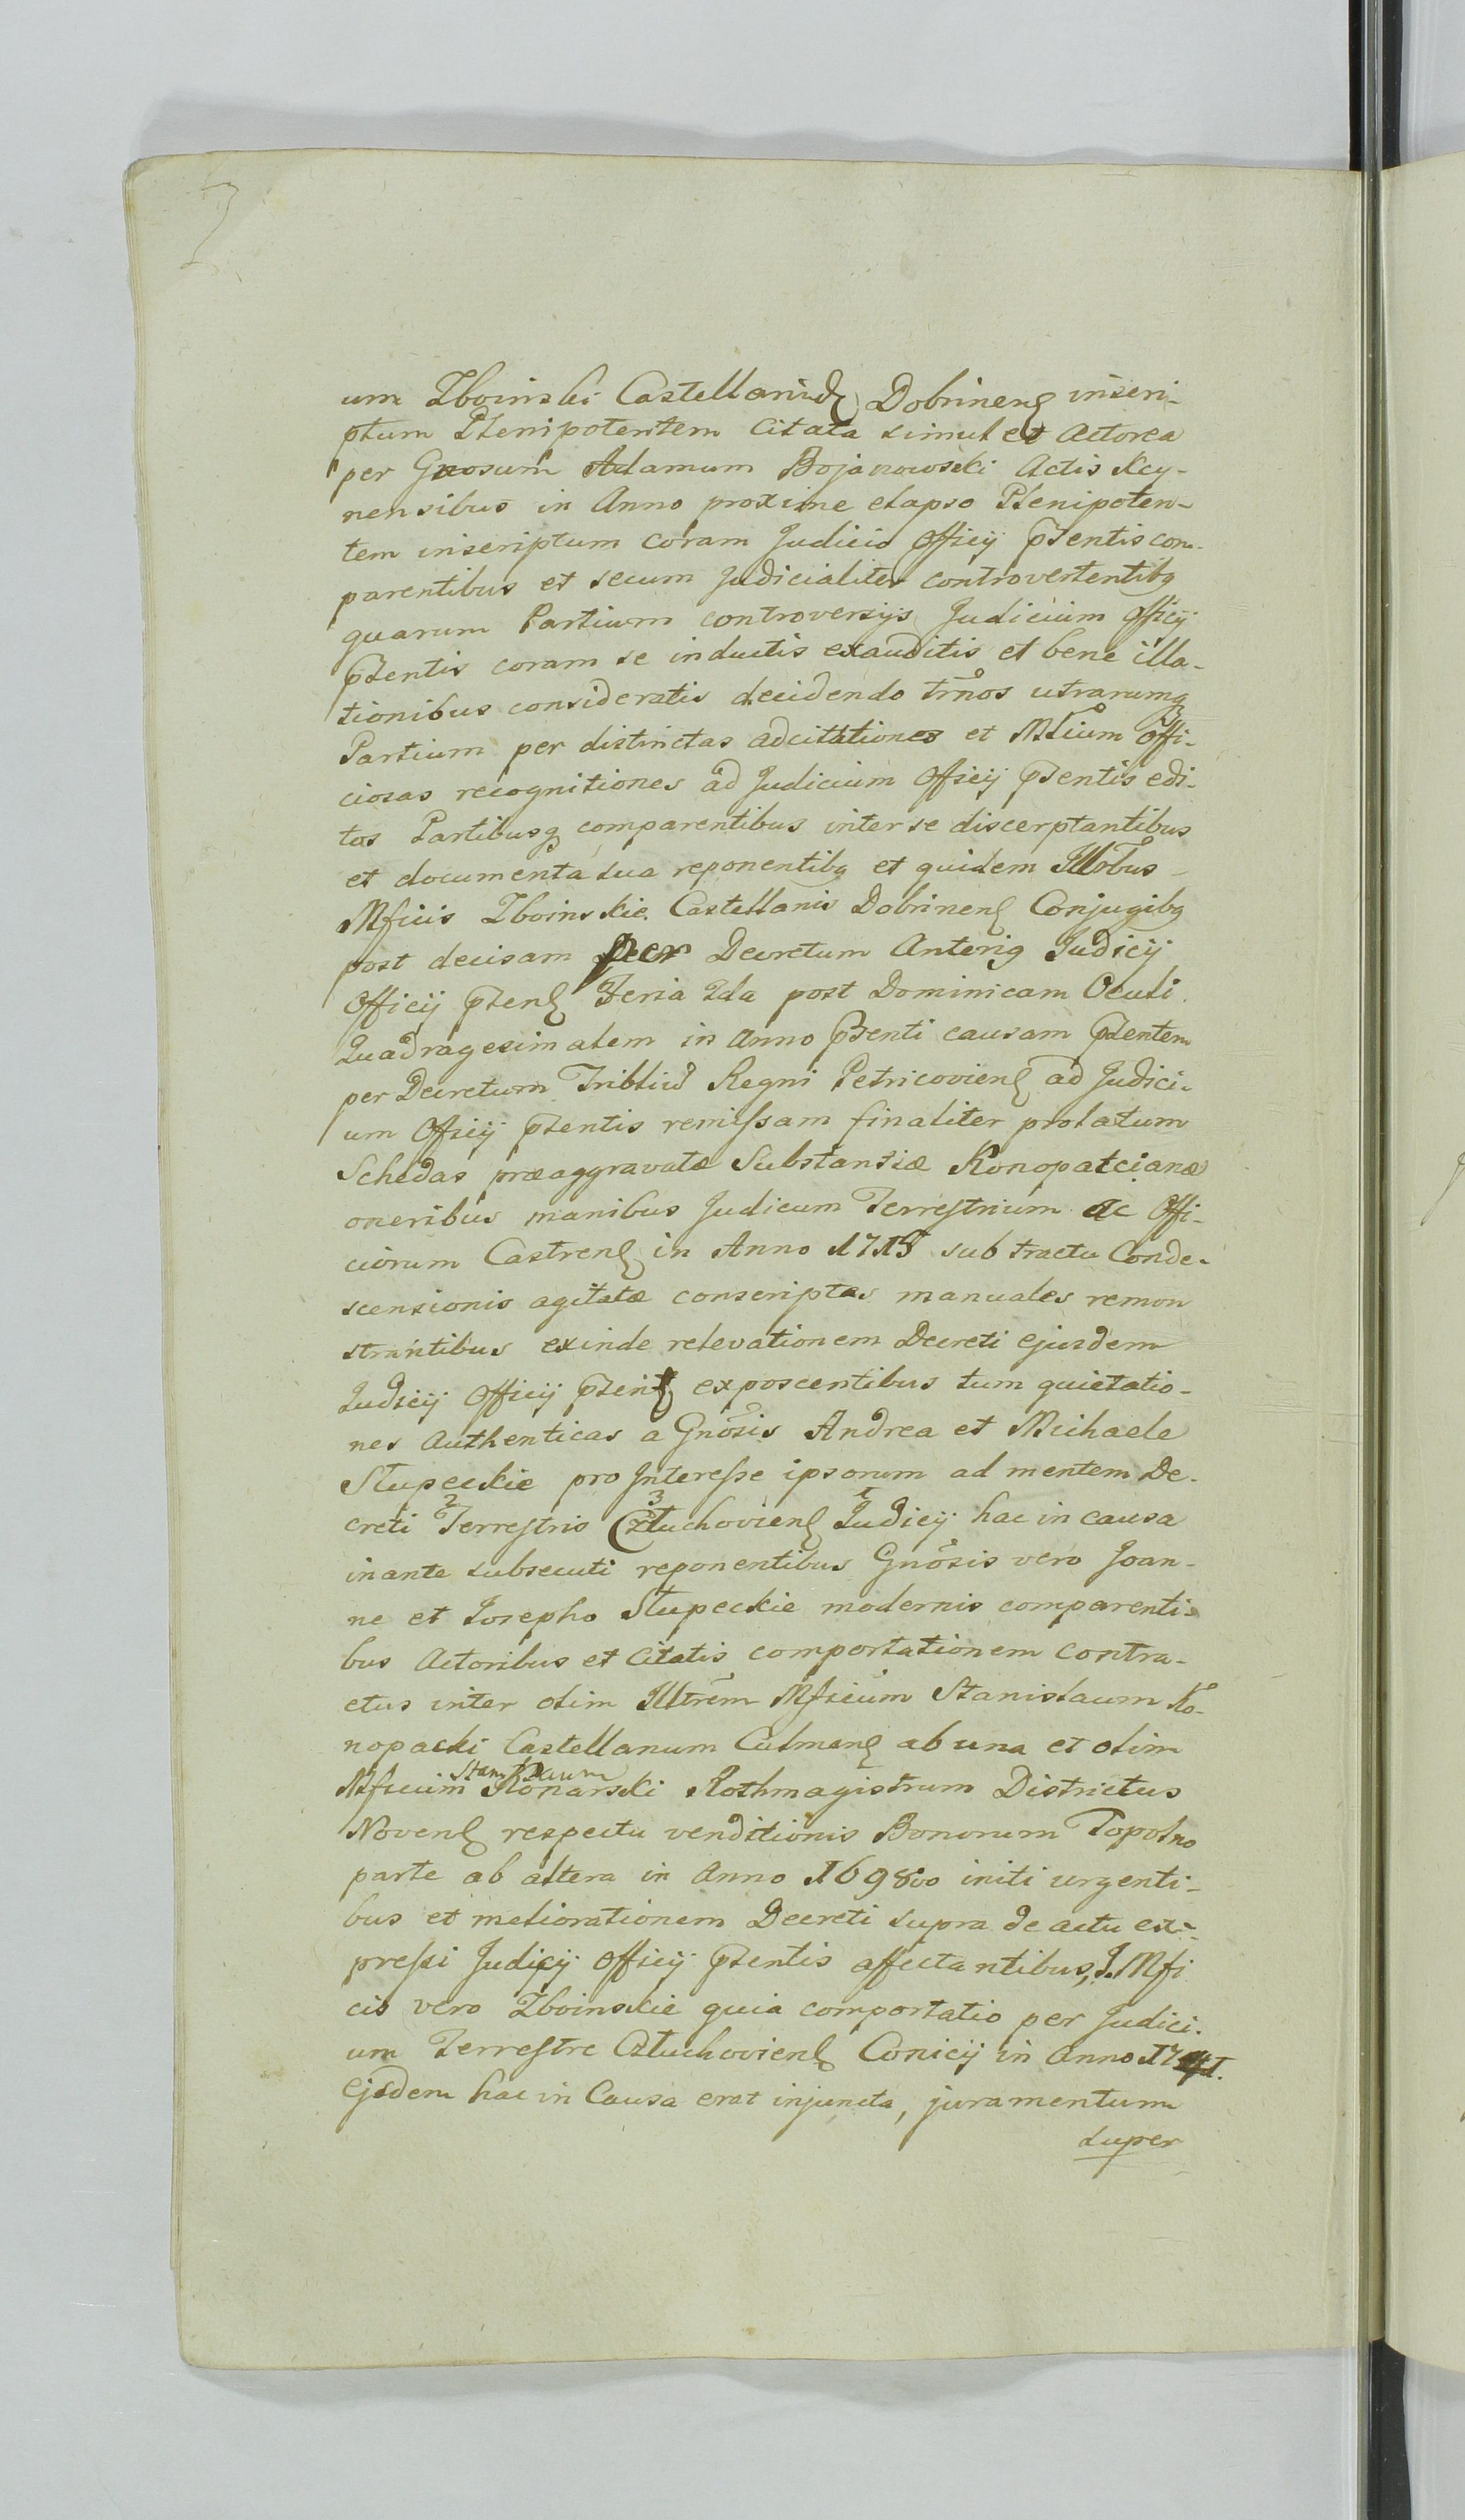 um Zboinski Castellanid Dobrinens inseri-
ptum Plenipotentem Citata simul et Actorea
per Gnosum Adamum Bojanowski Actis Kcy-
nensibus in Anno proxime elapso Plenipoten-
tem inseriptum coram Judicio Officij Ptentis com-
parentibus et secum Judicialiter controvertentibq
quarum Partium controversijs Judicium Officij
Ptentis coram se inductis exauditis et bene illa-
tionibus consideratis decidendo trnos utrarumq
Partium per distinctas adcitationes et Mtium Offi-
ciosas recognitiones ad Judicium Officij Ptentis edi-
tos Partibusq comparentibus inter se discerptantibus
et documenta sua reponentibq et quidem Illrbus
Mficis Zboinskie Castellanis Dobrinens Conjugibq
post decisam per Decretum Anteriq Judicij
Officij Ptens Feria 2da post Dominicam Oculi
Quadragesimalem in Anno Ptenti causam Ptentem
per Decretum Tribliud Regni Petricoviens ad Judici-
um Officij Ptentis remissam finaliter prolatum
Schedas præaggravatæ Substantiæ Konopatcianæ
oneribus manibus Judicum Terrestrium ac Offi-
ciorum Castrens in Anno 1715 sub tractu Conde-
scensionis agitatæ conscriptas manuales remon
strantibus exinde relevationem Decreti ejusdem
Judicij Officij Ptens exposcentibus tum quietatio-
nes Authenticas a Gnosis Andrea et Michaele
Słupeckie pro Interesse ipsorum ad mentem De-
creti 2 Terrestris 3 Człuchoviens 1 Judicij hac in causa
inante subsecuti reponentibus Gnosis vero Joan-
ne et Josepho Słupeckie modernis comparenti-
bus Actoribus et Citatis comportationem Contra-
ctus inter olim Illtrem Mficum Stanislaum Ko-
nopacki Castellanum Culmens ab una et olim
Mficum Stanislaum Konarski Rothmagistrum Districtus
Novens respectu venditionis Bonorum Topolno
parte ab altera in Anno 1698vo initi urgenti-
bus et meliorationem Decreti supra de actu ex-
pressi Judicij Officij Ptentis affectantibus, I. Mfi
cis vero Zboinskie quia comportatio per Judici-
um Terrestre Człuchoviens Conicij in Anno 1741.
Ejsdem hac in Causa erat injuncta, juramentum
super